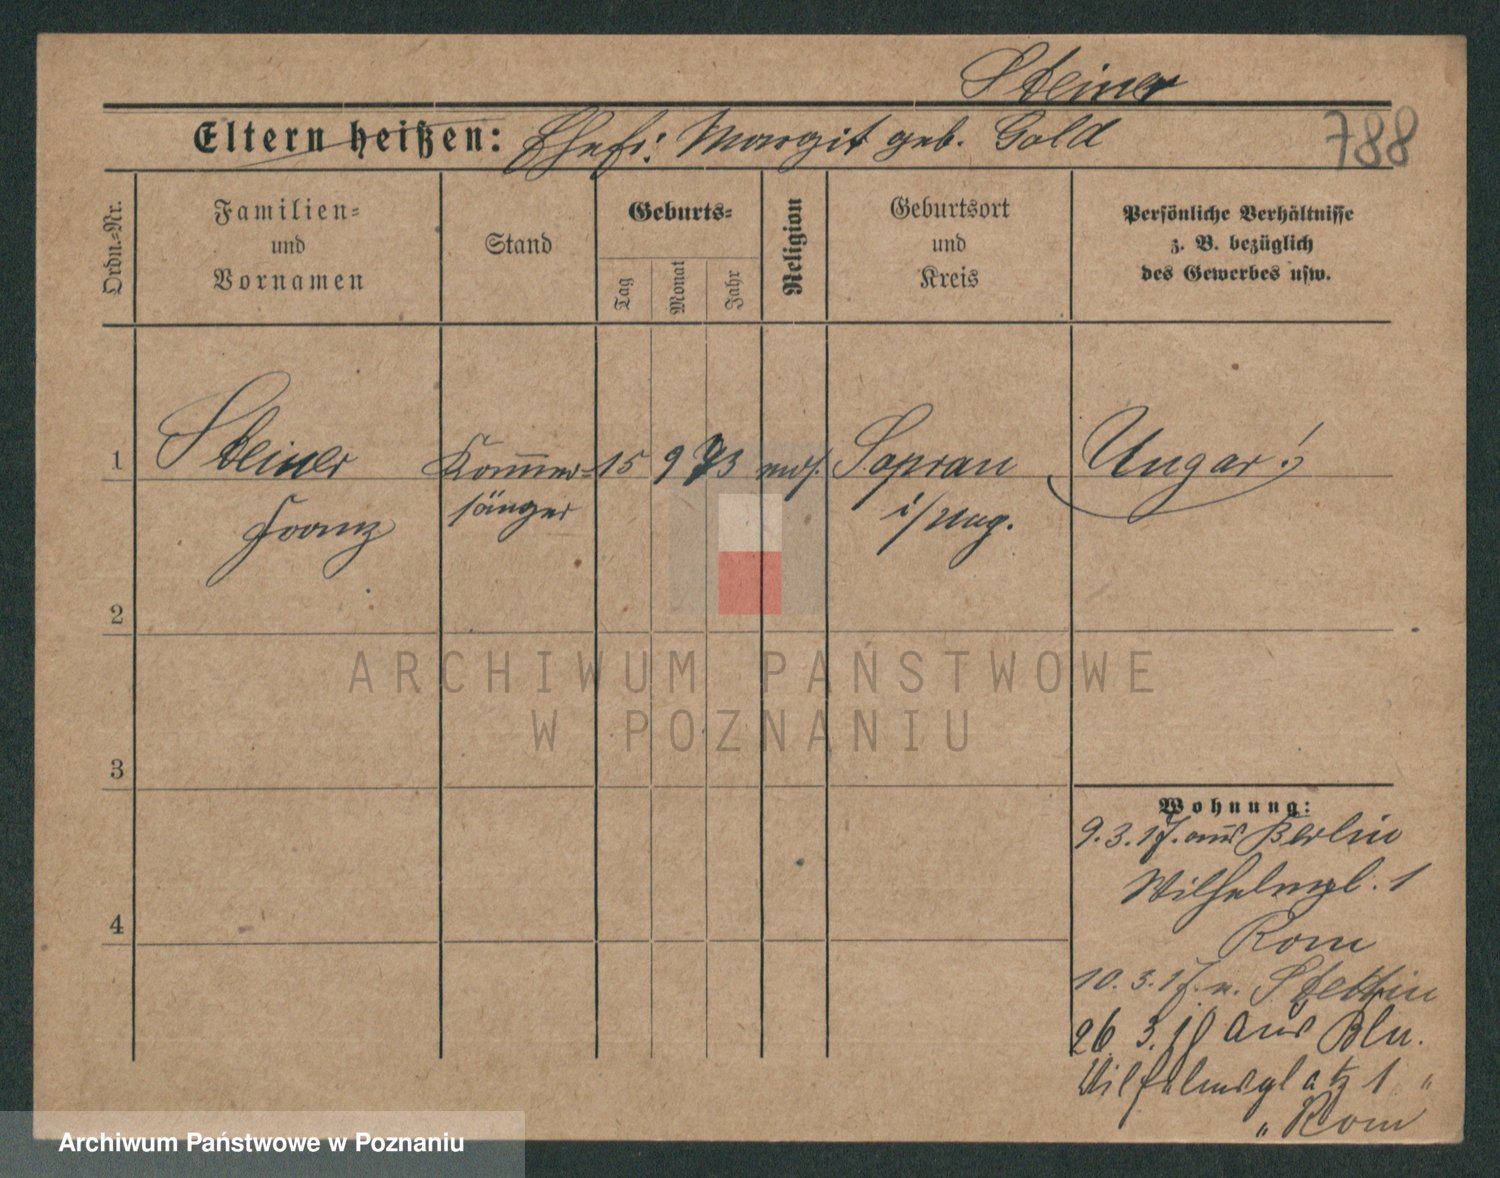 Steiner
Eltern heißen: Ehefr: Margit geb. Gold
788
Ordn.-Nr.
Familien-
und
Vornamen
Stand
Geburts-
Tag
Monat
Jahr
Religion
Geburtsort
und
Kreis
Persönliche Verhältnisse
z. B. bezüglich
des Gewerbes usw.
1
Steiner
Franz
Kammer-
sänger
15
9
73
Sopran
i/Ung.
Ungar!
2
3
4
Wohnung:
9.3.17. aus Berlin
Wilhelmpl. 1
Rom
10.3.17. n. Stettin
26.3.18 aus Bln.
Wilhelmsplatz 1 "
" Rom
ARCHIWUM PAŃSTWOWE
W POZNANIU
Archiwum Państwowe w Poznaniu